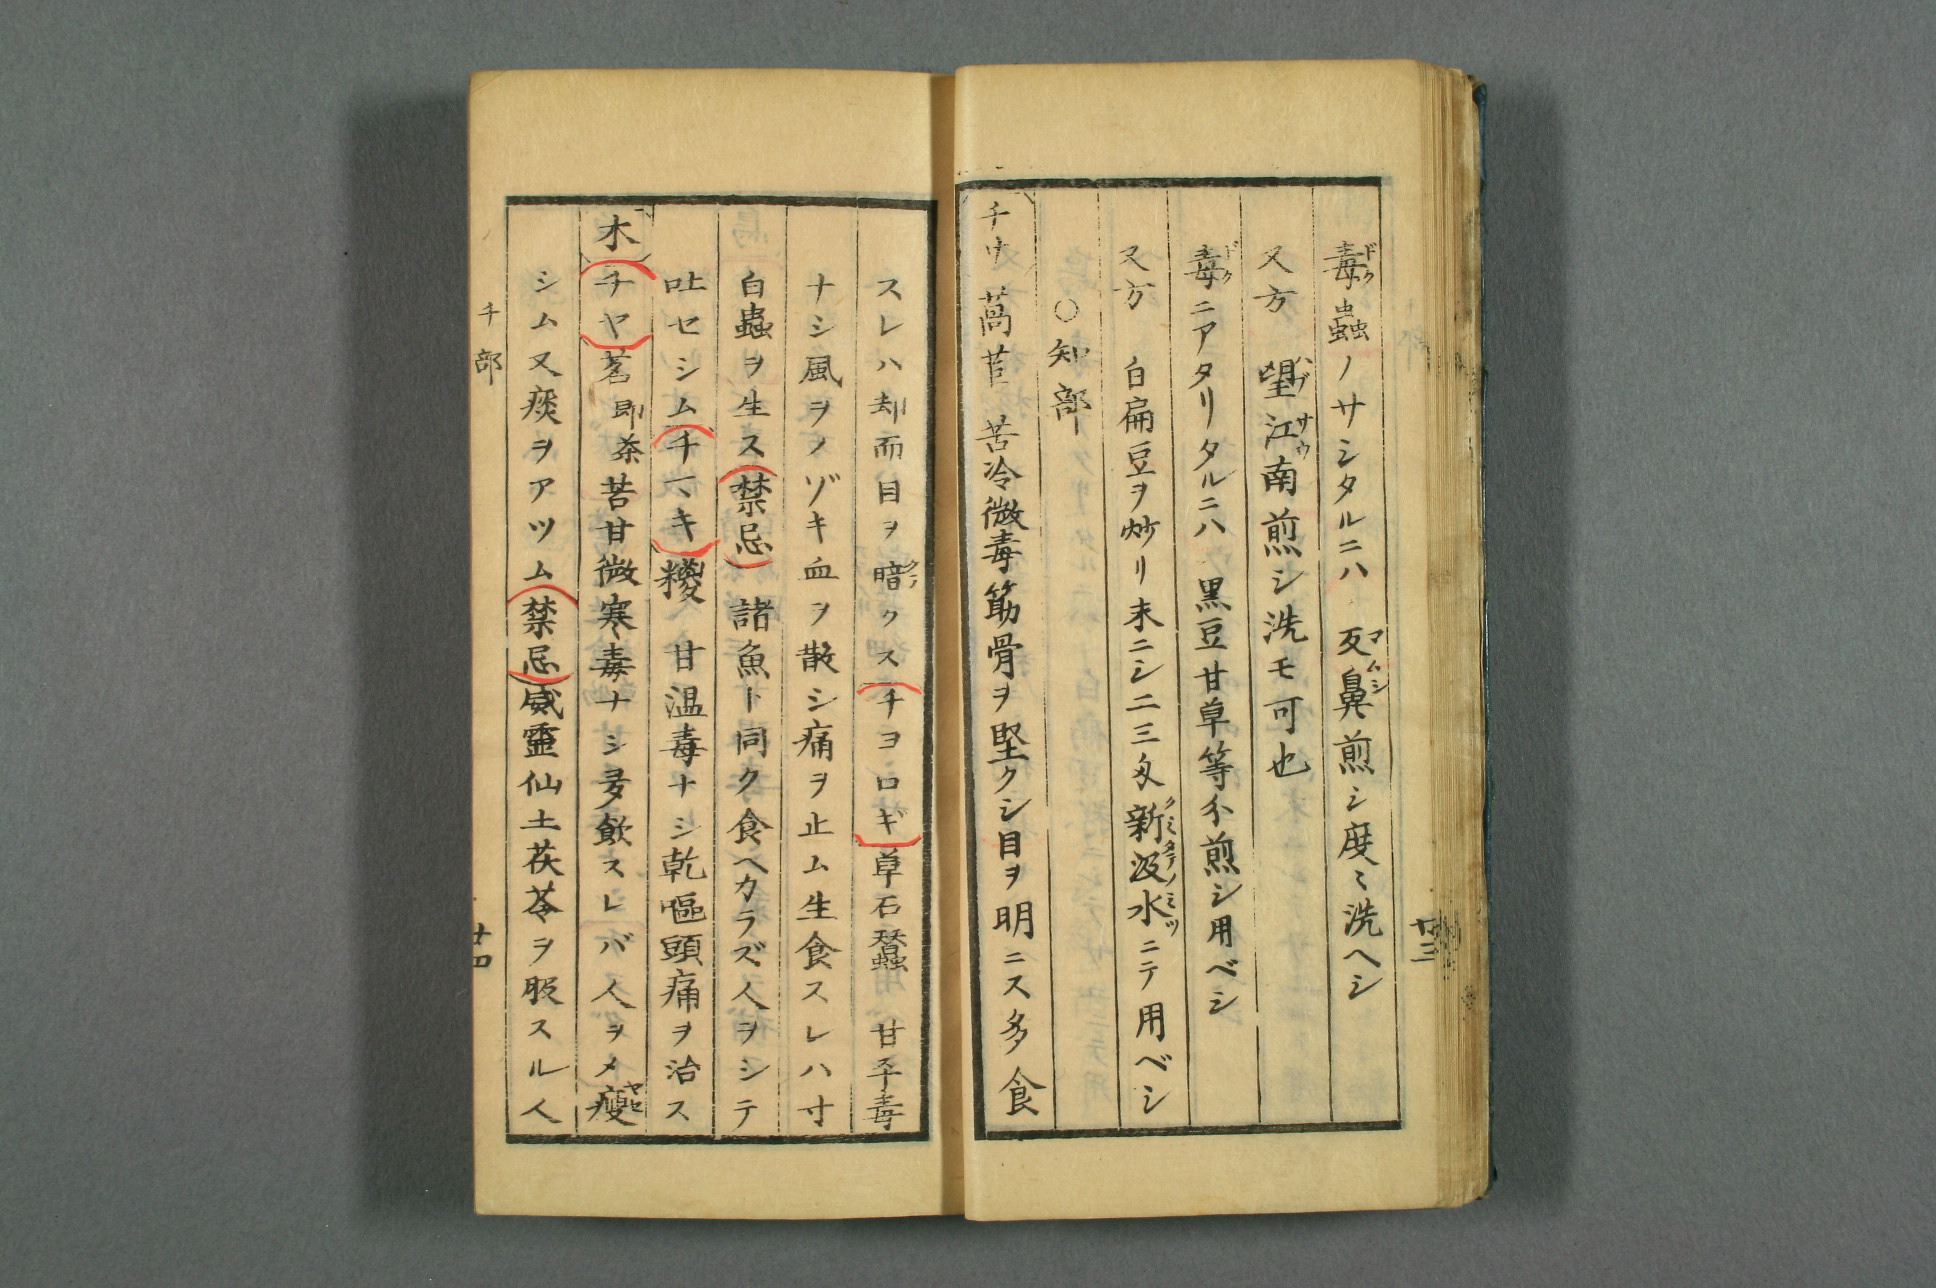 毒蟲ノサシタルニハ 反鼻煎シ度〻洗ヘシ
又方 望江南煎シ洗モ可也
毒ニアタリタルニハ 黒豆甘草等分煎シ用ベシ
又方 白扁豆ヲ炒リ末ニシ二三匁新汲水ニテ用ベシ
○知部
チサ 萵苣 苦冷微毒筋骨ヲ堅クシ目ヲ明ニス多食
廿三
スレハ却而目ヲ暗クスチヨロギ草石蠶 甘平毒
ナシ風ヲノゾキ血ヲ散シ痛ヲ止ム生食スレハ寸
白蟲ヲ生ス禁忌 諸魚ト同ク食ヘカラズ人ヲシテ
吐セシムチマキ糭 甘温毒ナシ乾嘔頭痛ヲ治ス
木チヤ茗即茶苦甘微寒毒ナシ多飲スレバ人ヲメ瘦
シム又痰ヲアツム禁忌威靈仙土茯苓ヲ服スル人
チ部
廿四